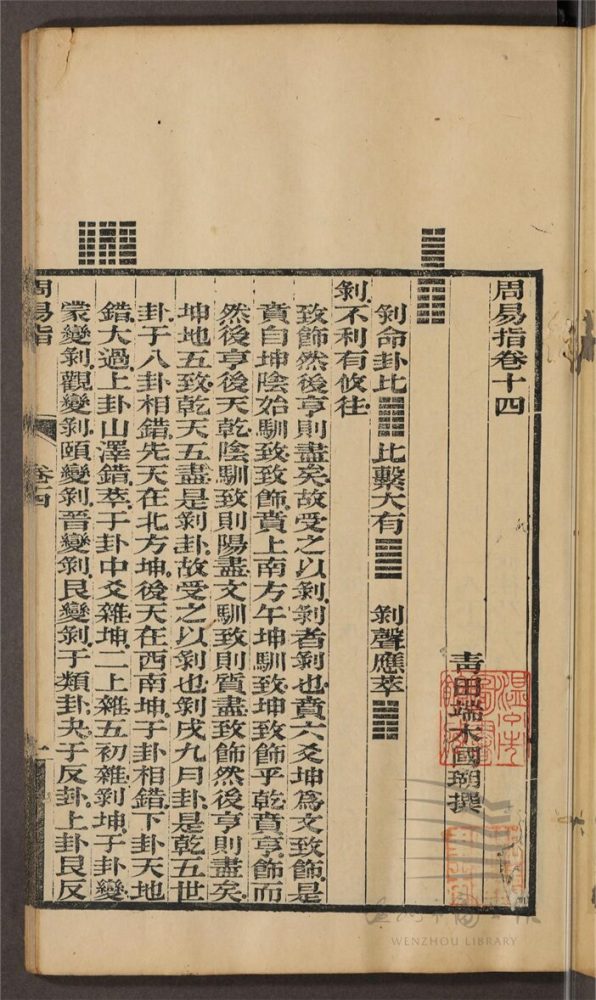 周易指卷十四
青田端木國瑚撰
剝命卦比䷇比繫大有䷍剝聲應萃䷬
剝不利有攸往
致飾然後亨則盡矣故受之以剝剝者剝也賁六爻坤爲文致飾是
賁自坤陰始馴致致飾賁上南方午坤馴致坤致飾乎乾賁亨飾而
然後亨後天乾陰馴致則陽盡文馴致則質盡致飾然後亨則盡矣
坤地五致乾天五盡是剝卦故受之以剝也剝戌九月卦是乾五世
卦于八卦相錯先天在北方坤後天在西南坤子卦相錯下卦天地
錯大過上卦山澤錯萃子卦中爻雜坤二上雜五初雜剝坤子卦變
蒙變剝觀變剝頤變剝晉變剝艮變剝于類卦夬于反卦上卦艮反
周易指
卷十四
一
WENZHOU LIBRARY